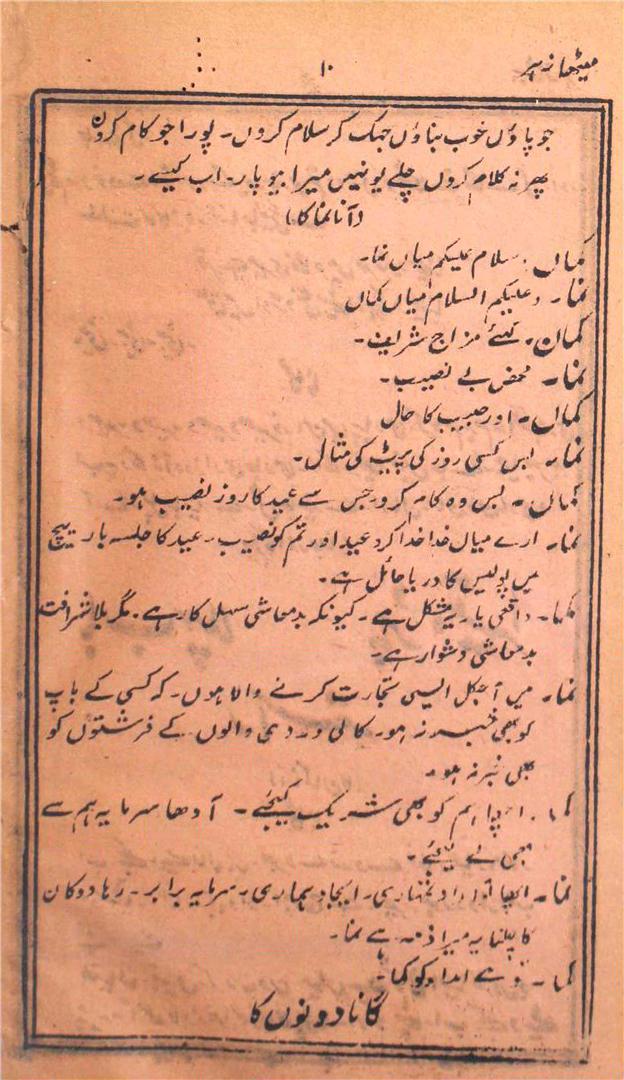 میٹھا زہر
۱۰
جو پاؤں خوب بناؤں جھک کر سلام کروں۔ پورا جو کام کروں
پھر نہ کلام کروں چلے یونہیں میرا بیوپار۔ اب کیسے۔
(آنا نما کا)
کماں۔ سلام علیکم میاں نما۔
نما۔ وعلیکم السلام میاں کماں
کمان۔ کہئے مزاج شریف۔
نما۔ محض بے نصیب۔
کماں۔ اور حبیب کا حال
نما۔ بس کسی روز کی پریٹ کی مثال۔
کماں۔ بس وہ کام کرو جس سے عید کا روز نصیب ہو۔
نما۔ ارے میاں خدا خدا کرو عید اور تم کو نصیب۔ عید کا جلسہ بار بیچ
میں پولیس کا دریا حائل ہے۔
کما۔ واقعی یار یہ مشکل ہے۔ کیونکہ بدمعاشی سہل کار ہے۔ مگر بلا شرافت
بدمعاشی دشوار ہے۔
نما۔ میں آجکل ایسی تجارت کرنے والا ہوں۔ کہ کسی کے باپ
کو بھی خبر نہ ہو۔ کالی وردی والوں کے فرشتوں کو
بھی خبر نہ ہو۔
کما۔ اچھا ہم کو بھی شریک کیجئے۔ آدھا سرمایہ ہم سے
بھی لے لیجئے۔
نما۔ اچھا تو امداد تمہاری۔ ایجاد ہماری۔ سرمایہ برابر۔ رہا دوکان
کا چلنا یہ میرا ذمہ ہے نما۔
کما۔ تو ہے امداد کو کما۔
گانا دونوں کا